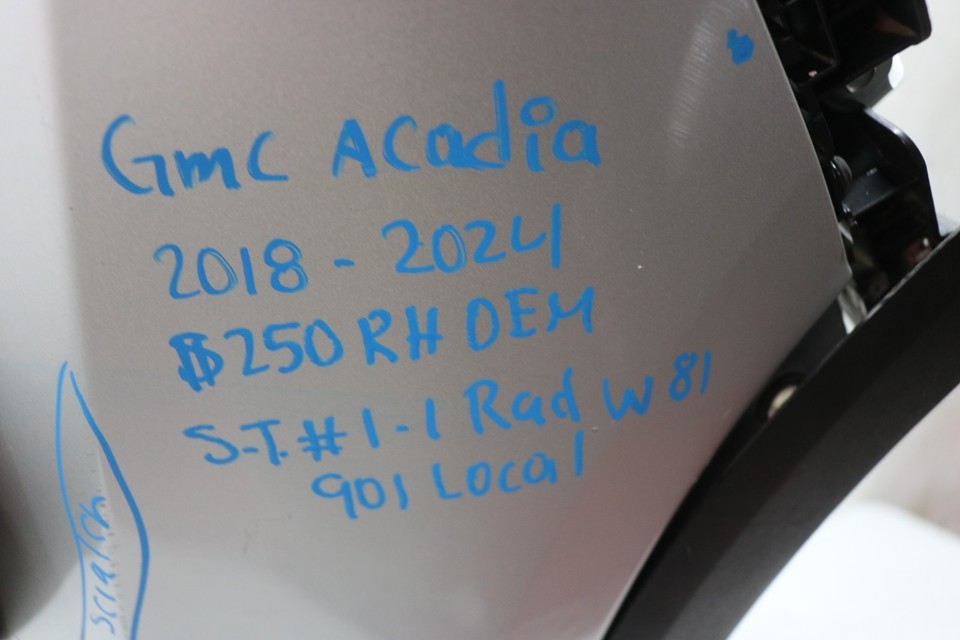 Gmc Acadia
2018 - 2024
$250 RH OEM
S.T.#1-1 Rad W81
901 Local
scratch